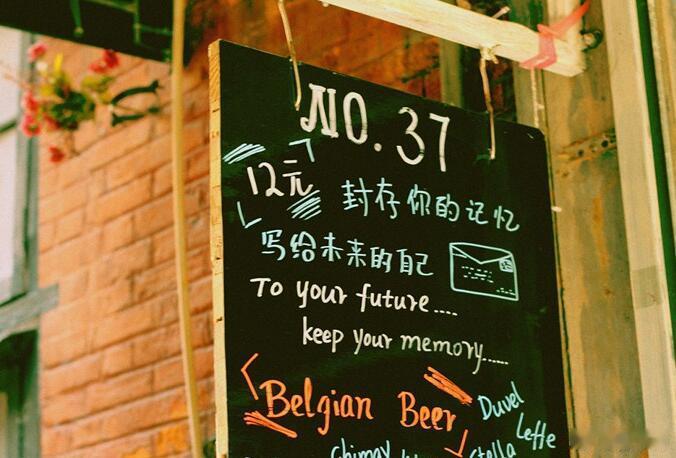 NO. 37
12元
封存你的记忆
写给未来的自己
To your future....
keep your memory......
Belgian Beer
Duvel
Leffe
Chimay
Stella